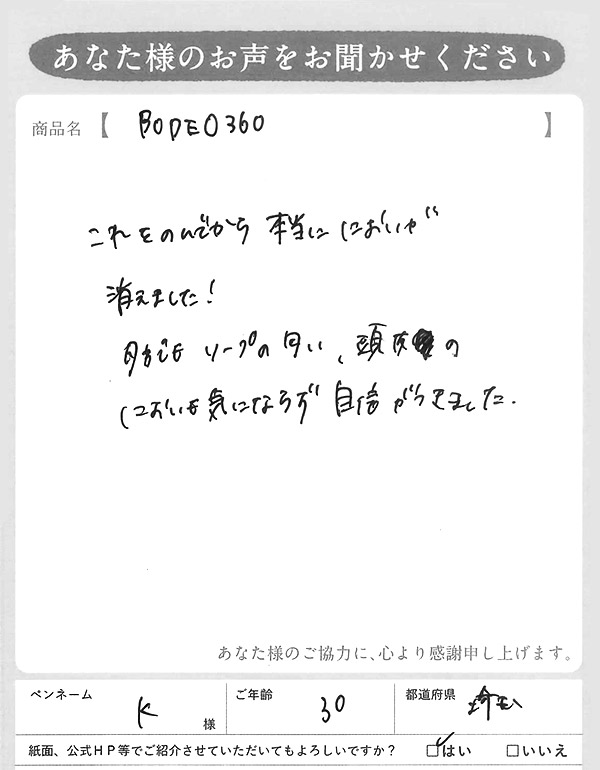 あなた様のお声をお聞かせください
商品名【 BODEO360 】
これをのんでから本当ににおいが
消えました!
ソープの匂い、頭皮の
においも気にならず自信がつきました.
あなた様のご協力に、心より感謝申し上げます。
ペンネーム K 様 ご年齢 30 都道府県 埼玉
紙面、公式HP等でご紹介させていただいてもよろしいですか? ☑はい □いいえ